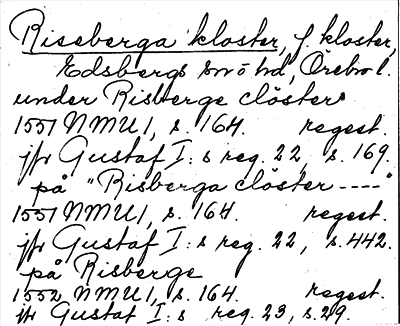 Riseberga kloster, f. kloster,
Edsbergs sn o hd, Örebro l.
under Risberge clöster
1551 NMU 1, s. 164. regest.
jfr Gustaf I:s reg. 22, s. 169.
på "Risberga clöster ----"
1551 NMU 1, s. 164. regest.
jfr Gustaf I:s reg. 22, s. 442.
på Risberge
1552 NMU 1, s. 164. regest.
jfr Gustaf I:s reg. 23, s. 29.